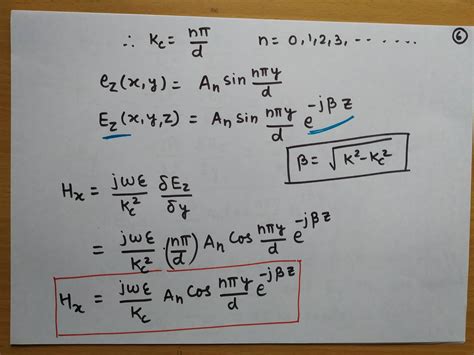 ∴ Kc = nπ/d    n = 0,1,2,3, - - - - - - -    6
ez(x,y) = An sin nπy/d
Ez(x,y,z) = An sin nπy/d e^-jβz
β = √(K²-Kc²)
Hx = jωε/Kc² δEz/δy
= jωε/Kc² · (nπ/d) An Cos nπy/d e^-jβz
Hx = jωε/Kc An Cos nπy/d e^-jβz